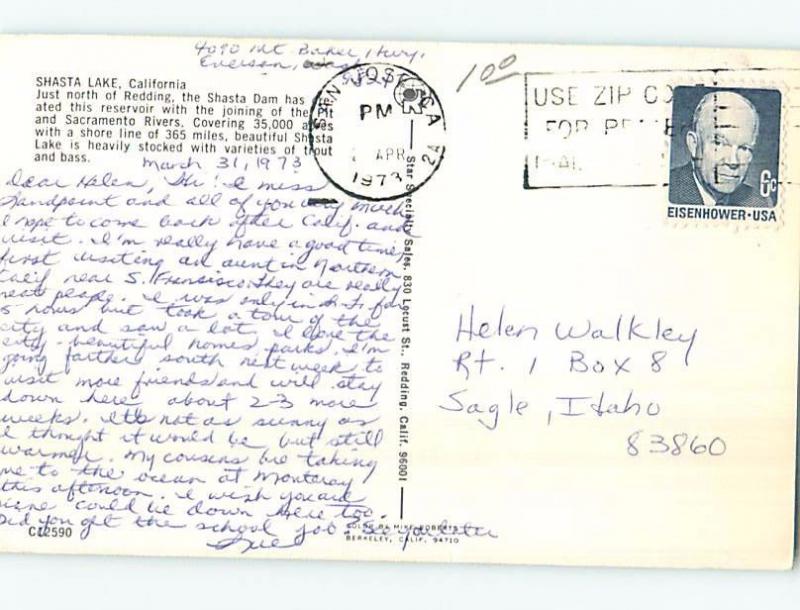 4090 Mt. Baker Hwy.
Everson, Wash
SHASTA LAKE, California
Just north of Redding, the Shasta Dam has
ated this reservoir with the joining of the Pit
and Sacramento Rivers. Covering 35,000 acres
with a shore line of 365 miles, beautiful Shasta
Lake is heavily stocked with varieties of trout
and bass.
March 31, 1973
Dear Helen, Hi! I miss
Sandpoint and all of you very much
I hope to come back after Calif. and
visit. I'm really have a good time,
first visiting an aunt in Northern
Calif near S. Fransisco. They are really
neat people. I was only in S.F. for
5 hours but took a tour of the
city and saw a lot. I love the
city - beautiful homes, parks. I'm
going farther south next week to
visit more friends and will stay
down here about 2-3 more
weeks. It's not as sunny as
I thought it would be but still
warmer. My cousens are taking
me to the ocean at Monteray
this afternoon. I wish you and
could be down here too.
Did you get the school job. See you later
Sue
C12590
COLOR BY MIKE ROBERTS
BERKELEY, CALIF. 94710
Star Specialty Sales, 830 Locust St., Redding, Calif. 96001
SAN JOSE, CA
PM
APR
1973
1 00
USE ZIP CO
FOR
EISENHOWER·USA
6c
Helen Walkley
Rt. 1 Box 81
Sagle, Idaho
83860